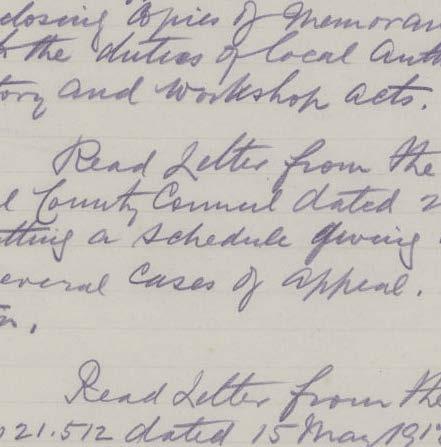 closing Copies of Memoran
the duties of local Auth
tory and Workshop acts.
Read Letter from the
l County Council dated 2
tting a schedule giving
everal cases of appeal.
Read Letter from the
21.512 dated 15 May 191